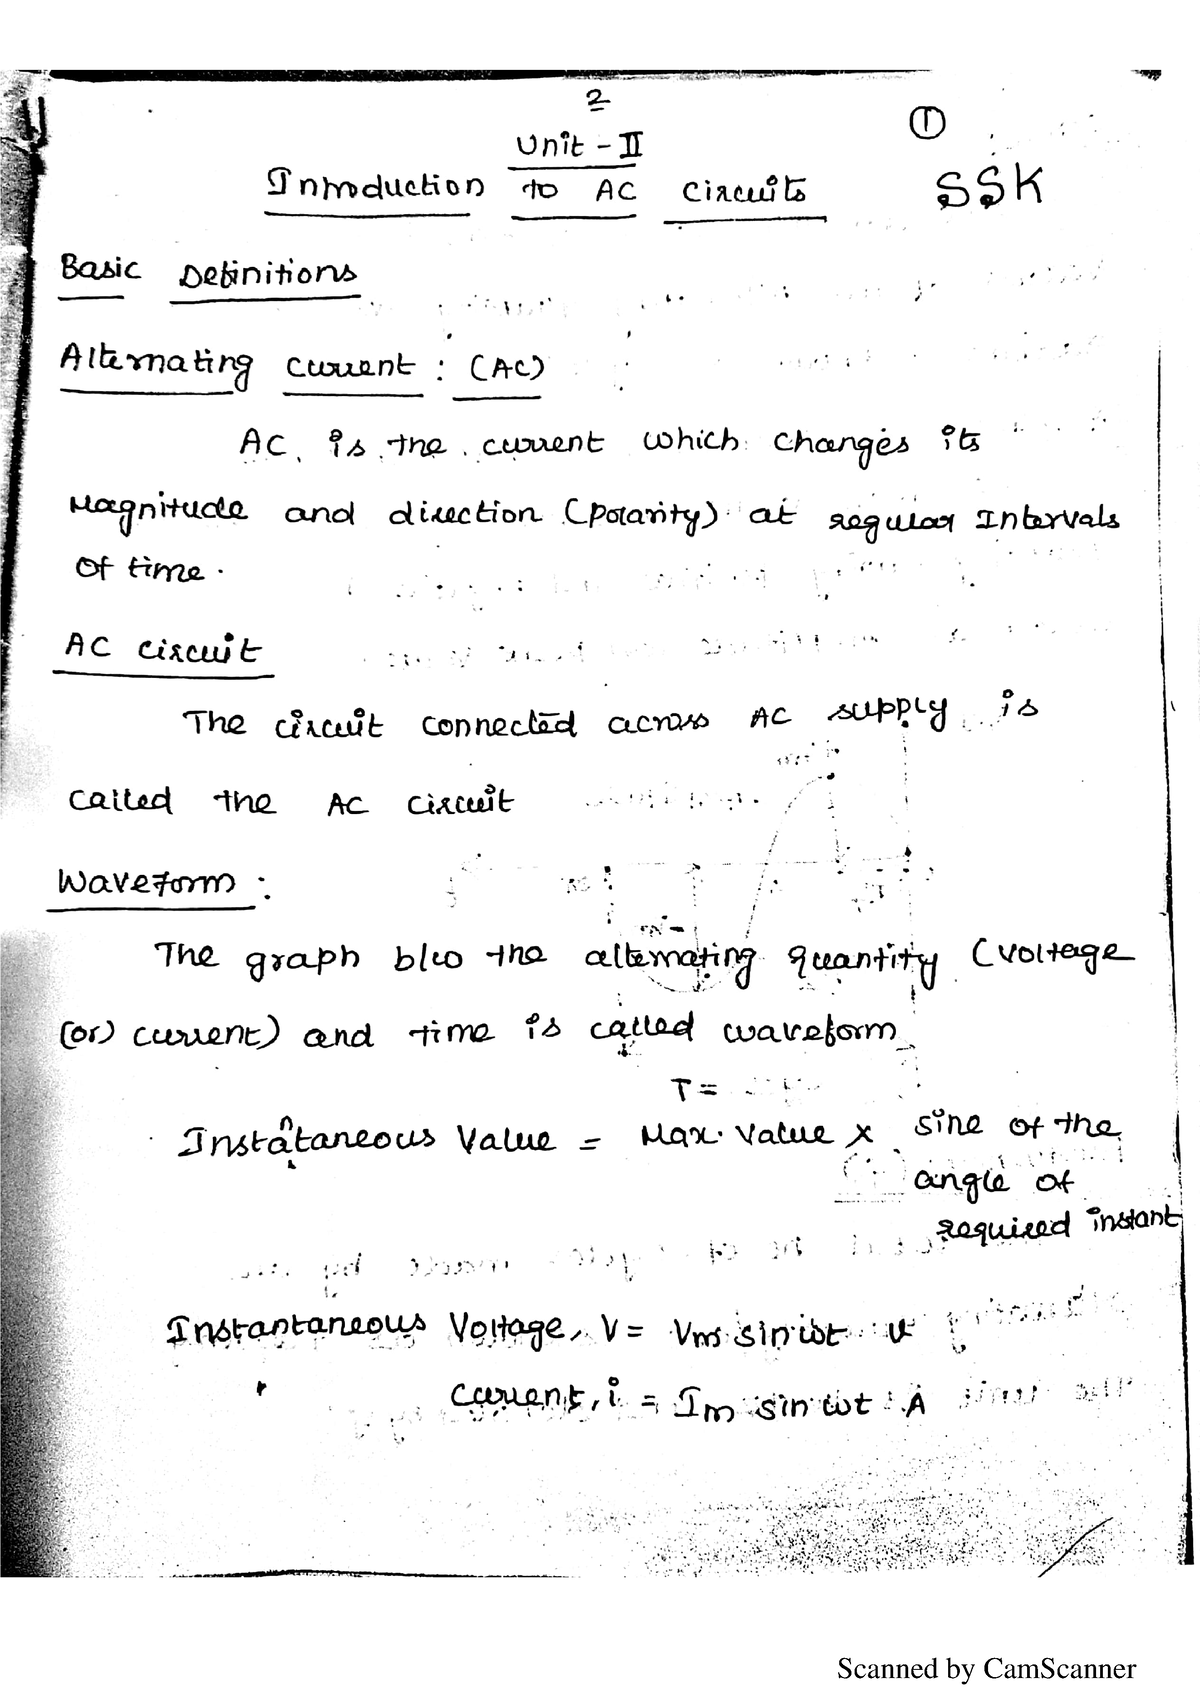 2
①
Unit - II
Introduction to AC circuits
SSK
Basic Definitions
Alternating current : (AC)
AC is the current which changes its
Magnitude and direction (polarity) at regular Intervals
of time.
AC circuit
The circuit connected across AC supply is
called the AC circuit
Waveform :
The graph b/w the alternating quantity (voltage
(or) current) and time is called waveform
T =
Instantaneous Value = Max. Value x sine of the
angle of
required instant
Instantantaneous Voltage, V = Vm sin ωt V
current, i = Im sin ωt A
Scanned by CamScanner